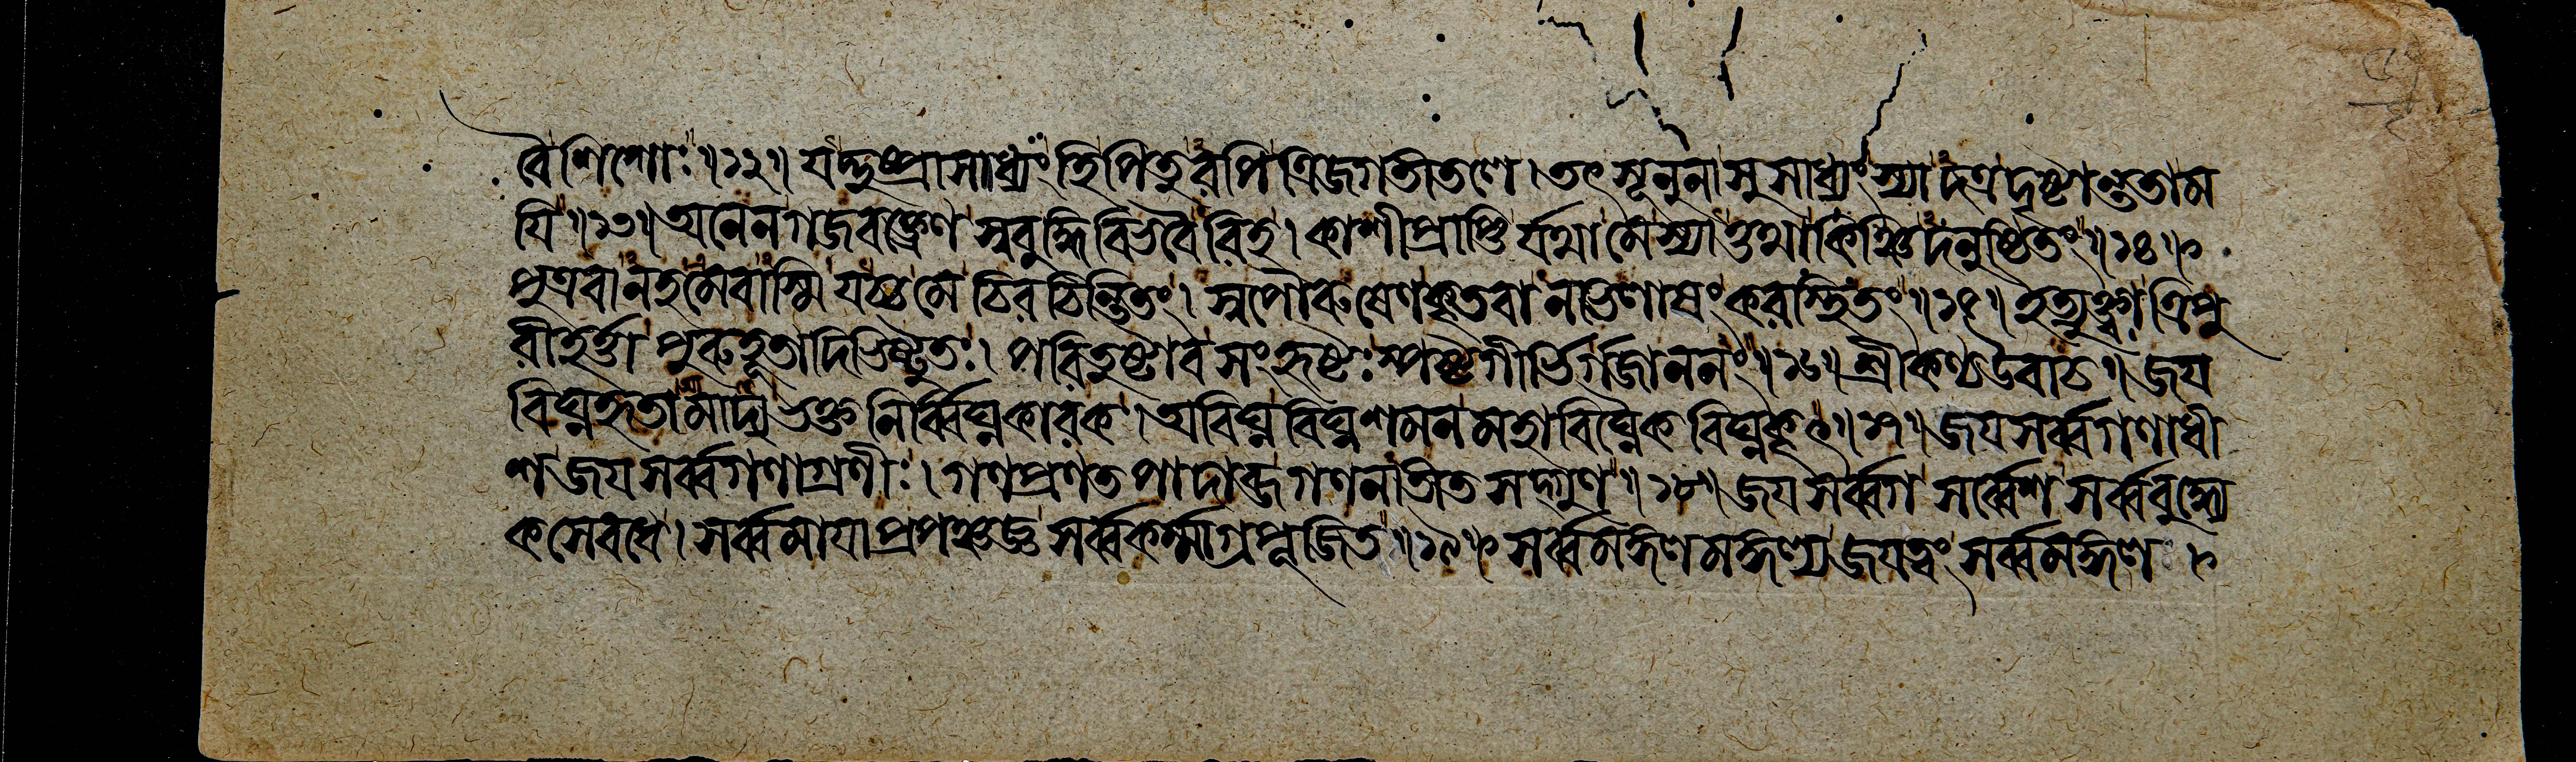 বৈ শিশোঃ ॥ ১২ ॥ যদ্দুষ্প্রাসাধ্যং হি পিতুরপি ত্রিজগতীতলে । তৎ সূনুনা সুসাধ্যং স্যাদত্র দৃষ্টান্ততা ম
যি ॥ ১৩ ॥ অনেন গজবক্ত্রেণ স্ববুদ্ধিবিভবৈরিহ । কাশীপ্রাপ্তির্যথা মে স্যাত্তথা কিঞ্চিদনুষ্ঠিতং ॥ ১৪ ॥
পুত্রবানহমেবাস্মি যচ্চ মে চিরচিন্তিতং । স্বপৌরুষেণ কৃতবানভিলাষং করস্থিতং ॥ ১৫ ॥ ইত্যুক্ত্বা ত্রিপু
রীহর্ত্তা পুরুহূতাদিভিষ্টুতঃ । পরিতুষ্টাব সংহৃষ্টঃ স্পষ্টগীর্ভির্গজাননং ॥ ১৬ ॥ শ্রীকণ্ঠ উবাচ ॥ জয়
বিঘ্নহৃতামাদ্য ভক্তনির্ব্বিঘ্নকারক । অবিঘ্ন বিঘ্নশমন মহাবিঘ্নৈকবিঘ্নকৃৎ ॥ ১৭ ॥ জয় সর্ব্বগণাধী
শ জয় সর্ব্বগণাগ্রণীঃ । গণপ্রণতপাদাব্জ গণনাতীতসদ্গুণ ॥ ১৮ ॥ জয় সর্ব্বগ সর্ব্বেশ সর্ব্ববুদ্ধ্যে
কসেবধে । সর্ব্বমায়াপ্রপঞ্চজ্ঞ সর্ব্বকর্ম্মাগ্রপূজিত ॥ ১৯ ॥ সর্ব্বমঙ্গলমঙ্গল্য জয় ত্বং সর্ব্বমঙ্গল